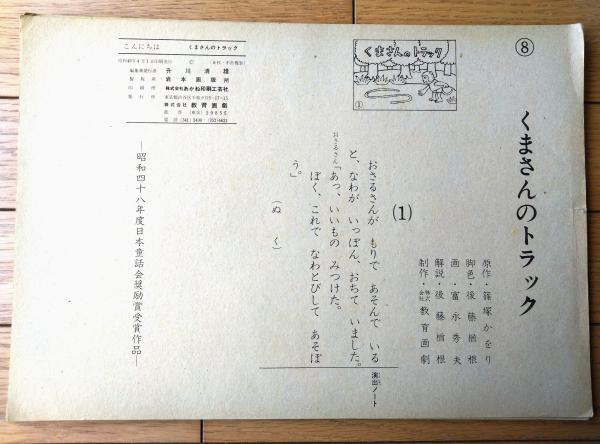 ⑧
くまさんのトラック
原作・篠塚かをり
脚色・後藤楢根
画・富永秀夫
解説・後藤楢根
制作・株式会社教育画劇
くまさんのトラック
①
演出ノート
(1)
おさるさんが もりで あそんで いる
と、なわが いっぽん、おちて いました。
おさるさん「あっ、いいもの みつけた。
ぼく、これで なわとびして あそぼ
う。」
(ぬ く)
―昭和四十八年度日本童話会奨励賞受賞作品―
こんにちは くまさんのトラック
編集兼発行者 升川清雄
製版所 岩本画版所
印刷所 株式会社あかね印刷工芸社
発行所
株式会社教育画劇